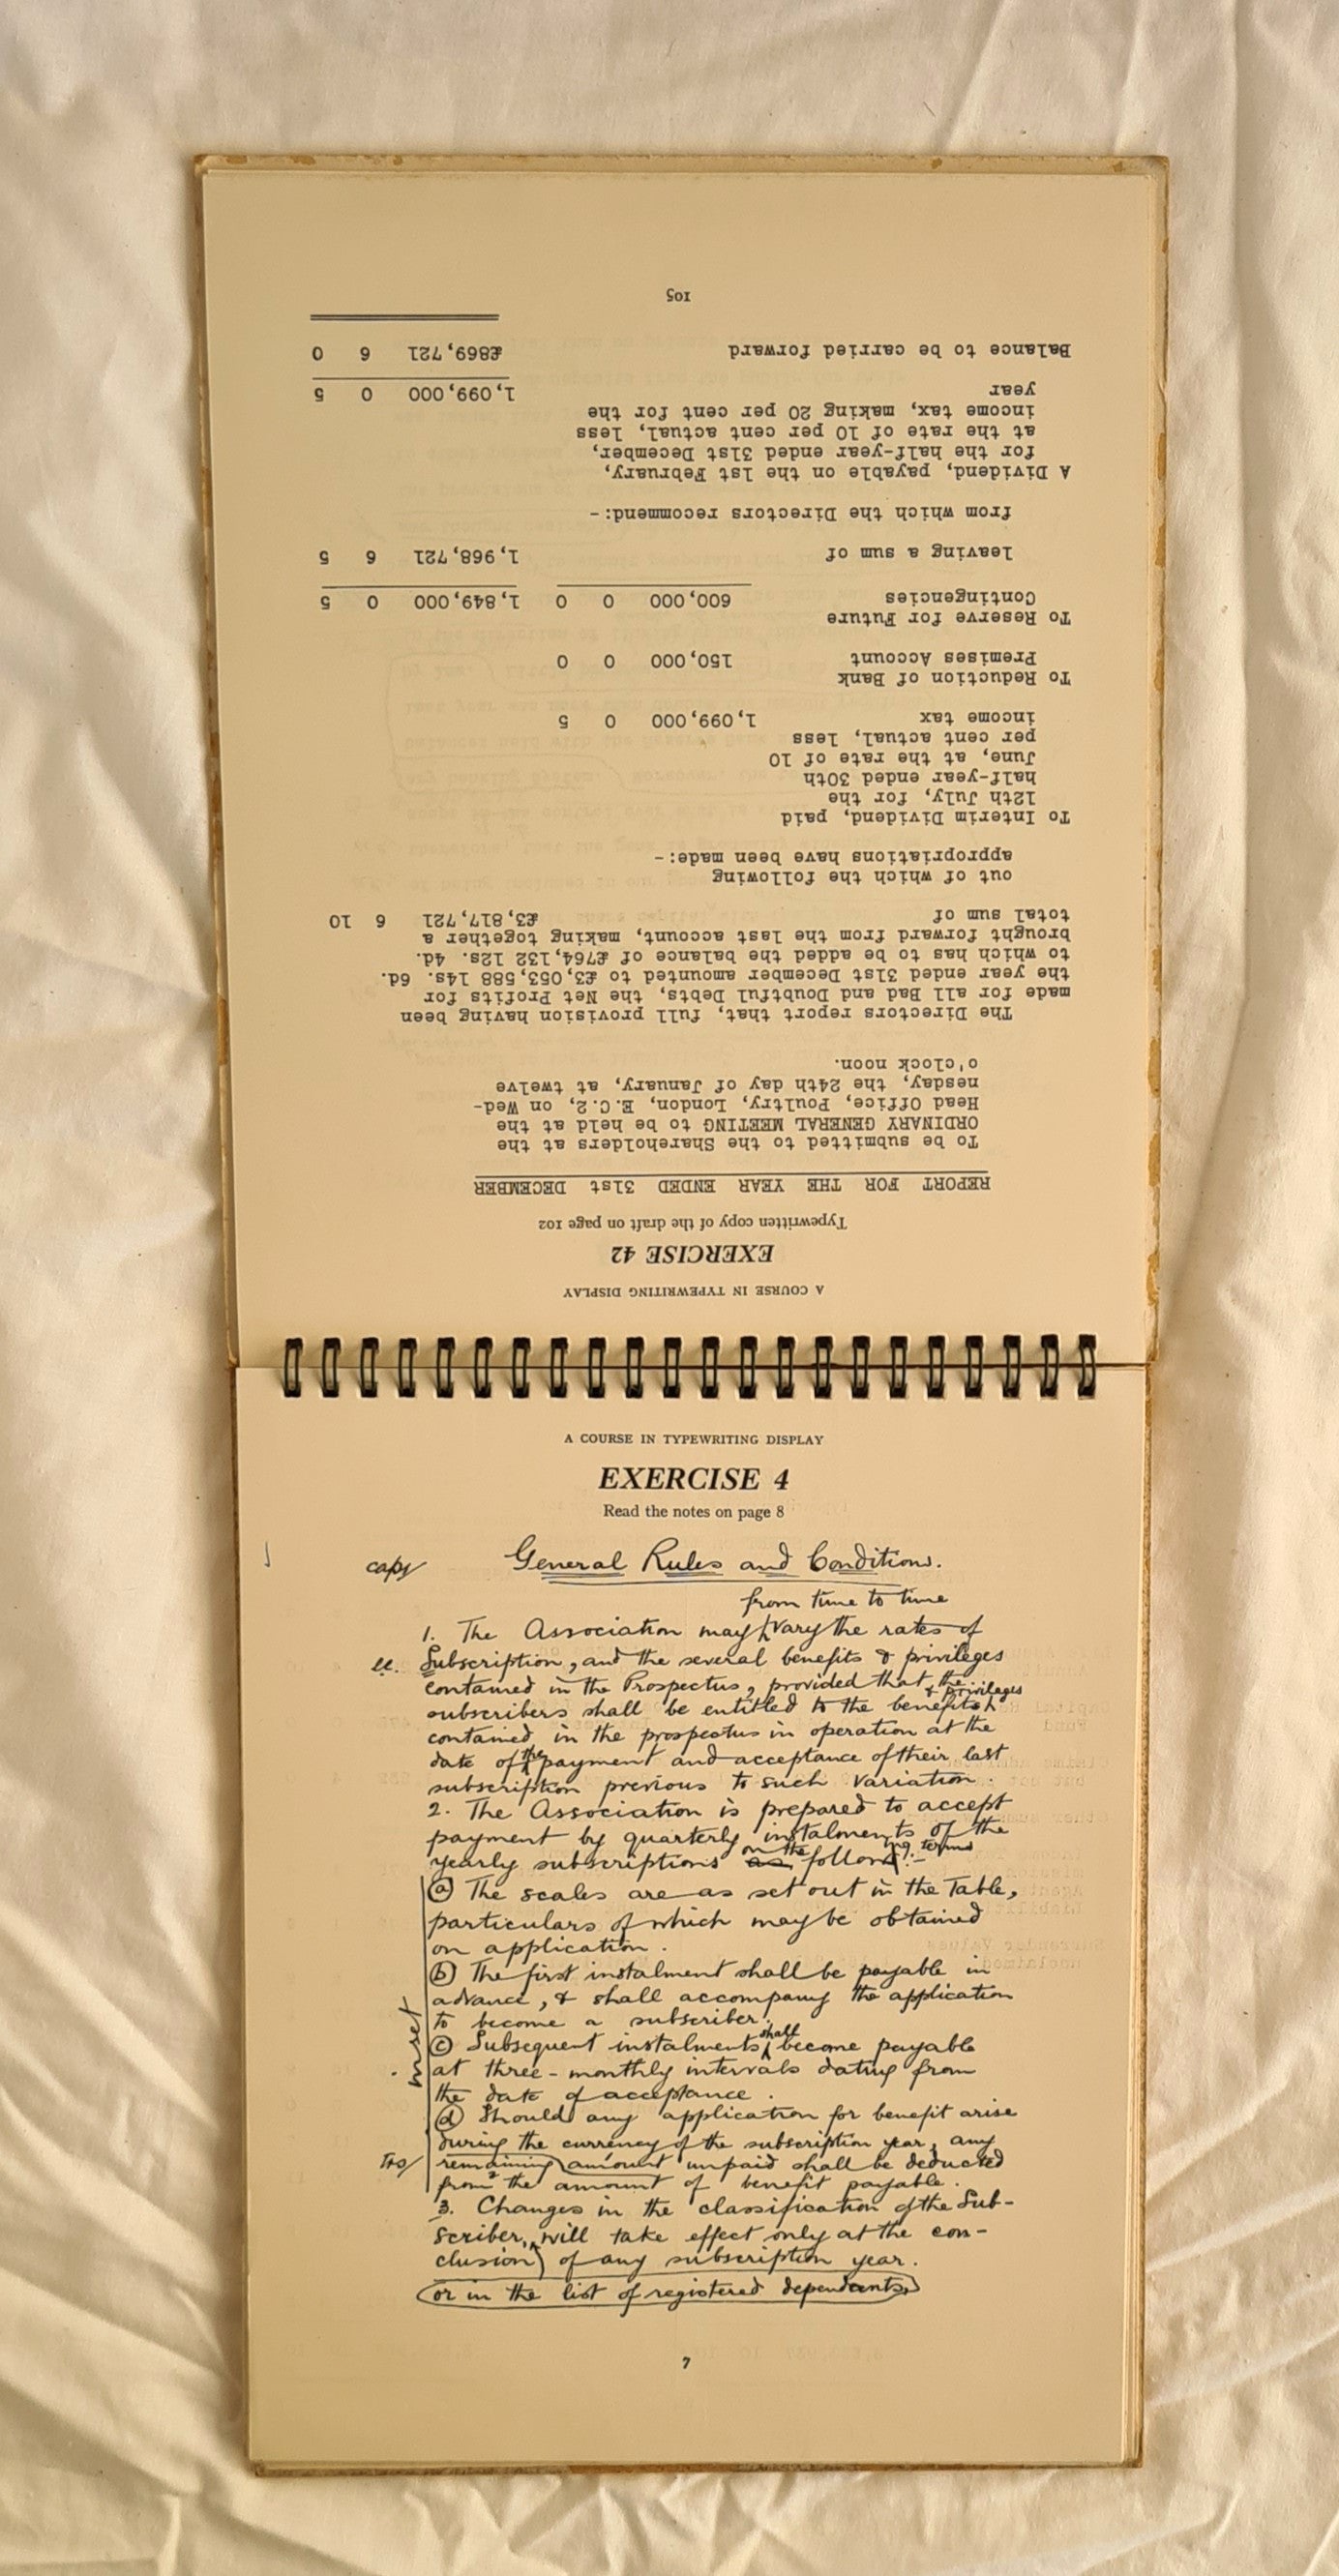 A COURSE IN TYPEWRITING DISPLAY
EXERCISE 42
Typewritten copy of the draft on page 102
REPORT FOR THE YEAR ENDED 31st DECEMBER
To be submitted to the Shareholders at the
ORDINARY GENERAL MEETING to be held at the
Head Office, Poultry, London, E.C.2, on Wed-
nesday, the 24th day of January, at twelve
o'clock noon.
The Directors report that, full provision having been
made for all Bad and Doubtful Debts, the Net Profits for
the year ended 31st December amounted to £3,053,588 14s. 6d.
to which has to be added the balance of £764,132 12s. 4d.
brought forward from the last account, making together a
total sum of £3,817,721 6 10
out of which the following
appropriations have been made:-
To Interim Dividend, paid
12th July, for the
half-year ended 30th
June, at the rate of 10
per cent actual, less
income tax 1,099,000 0 5
To Reduction of Bank
Premises Account 150,000 0 0
To Reserve for Future
Contingencies 600,000 0 0 1,849,000 0 5
leaving a sum of 1,968,721 6 5
from which the Directors recommend:-
A Dividend, payable on the 1st February,
for the half-year ended 31st December,
at the rate of 10 per cent actual, less
income tax, making 20 per cent for the
year 1,099,000 0 5
Balance to be carried forward £869,721 6 0
105
A COURSE IN TYPEWRITING DISPLAY
EXERCISE 4
Read the notes on page 8
copy General Rules and Conditions.
from time to time
1. The Association may vary the rates of
l.c. Subscription, and the several benefits & privileges
contained in the Prospectus, provided that the
& privileges
subscribers shall be entitled to the benefits
contained in the prospectus in operation at the
date of the payment and acceptance of their last
subscription previous to such variation.
2. The Association is prepared to accept
payment by quarterly instalments of the
on the ing terms
yearly subscriptions as follow:-
(a) The scales are as set out in the Table,
particulars of which may be obtained
on application.
(b) The first instalment shall be payable in
advance, & shall accompany the application
to become a subscriber.
inset
shall
(c) Subsequent instalments become payable
at three-monthly intervals dating from
the date of acceptance.
(d) Should any application for benefit arise
during the currency of the subscription year, any
trs/ remaining amount unpaid shall be deducted
from the amount of benefit payable.
3. Changes in the classification of the Sub-
scriber, will take effect only at the con-
clusion of any subscription year.
or in the list of registered dependants,
7